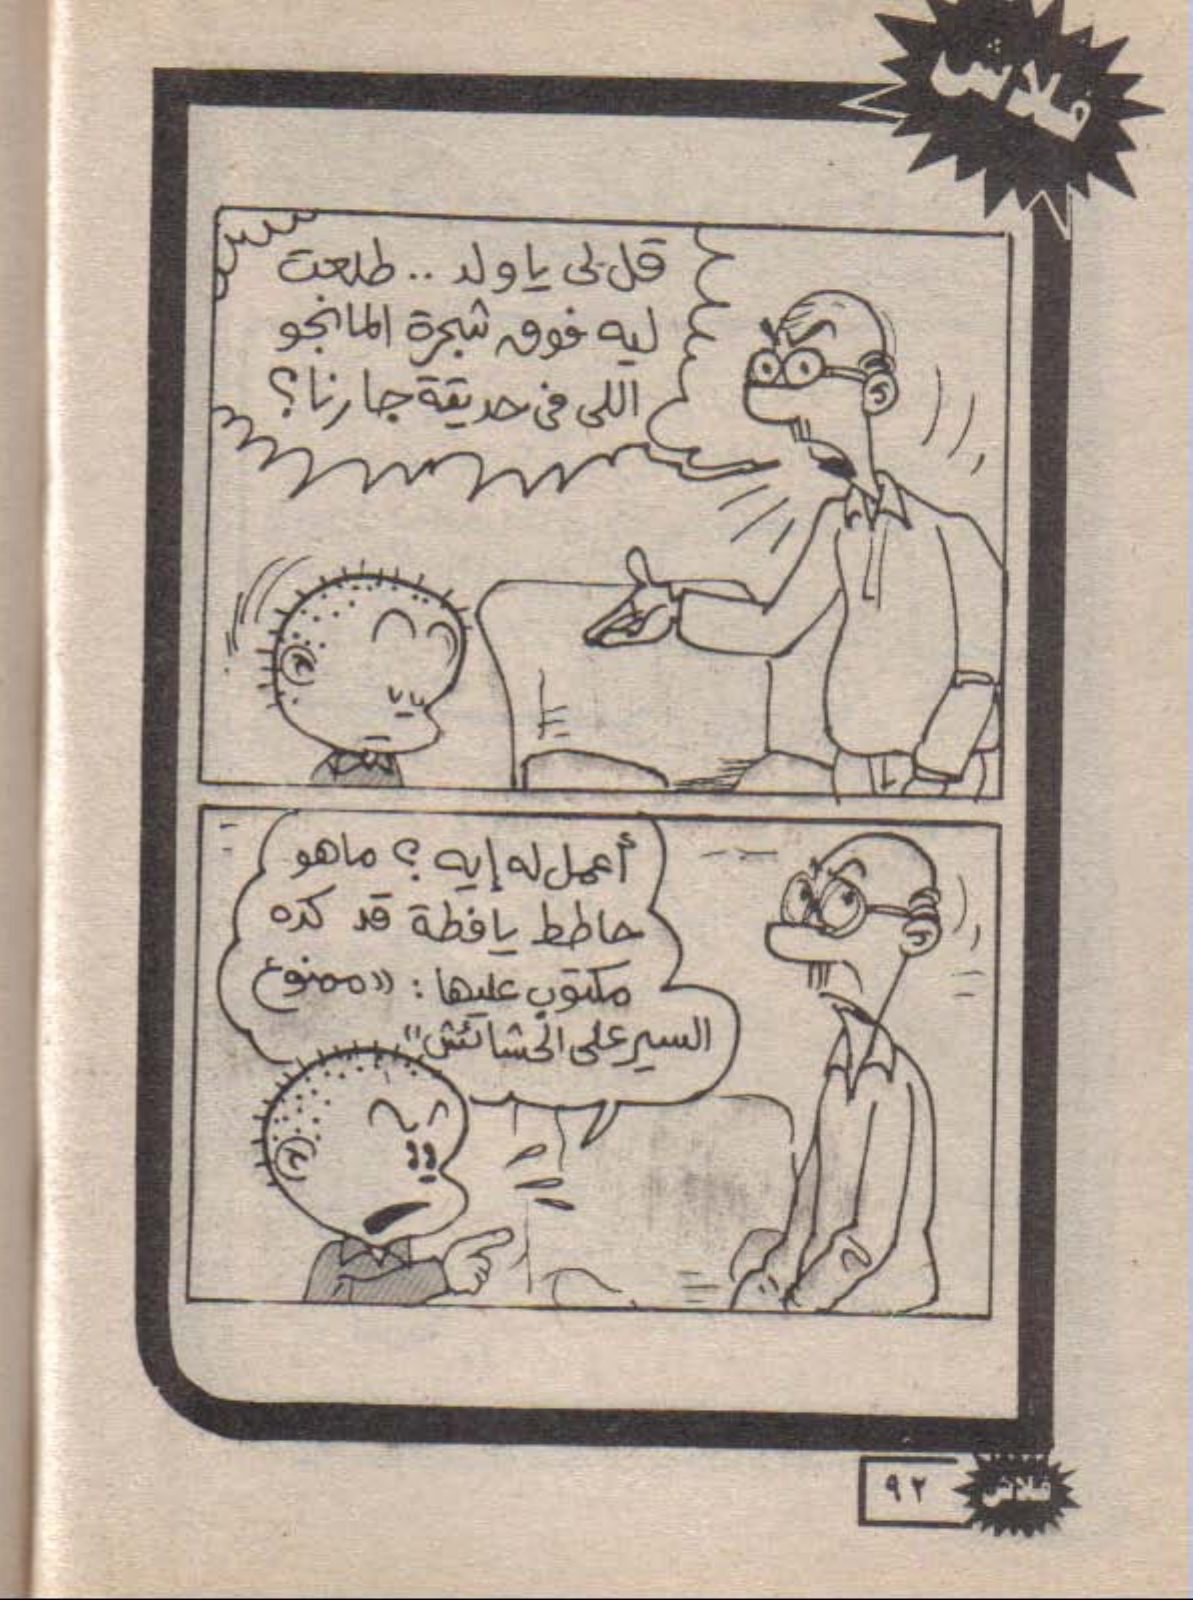 فلاش
قل لى ياولد .. طلعت
ليه فوق شجرة المانجو
اللى فى حديقة جارنا؟
أعمل له إيه ؟ ماهو
حاطط يافطة قد كده
مكتوب عليها : "ممنوع
السير على الحشائش"
٩٢
فلاش